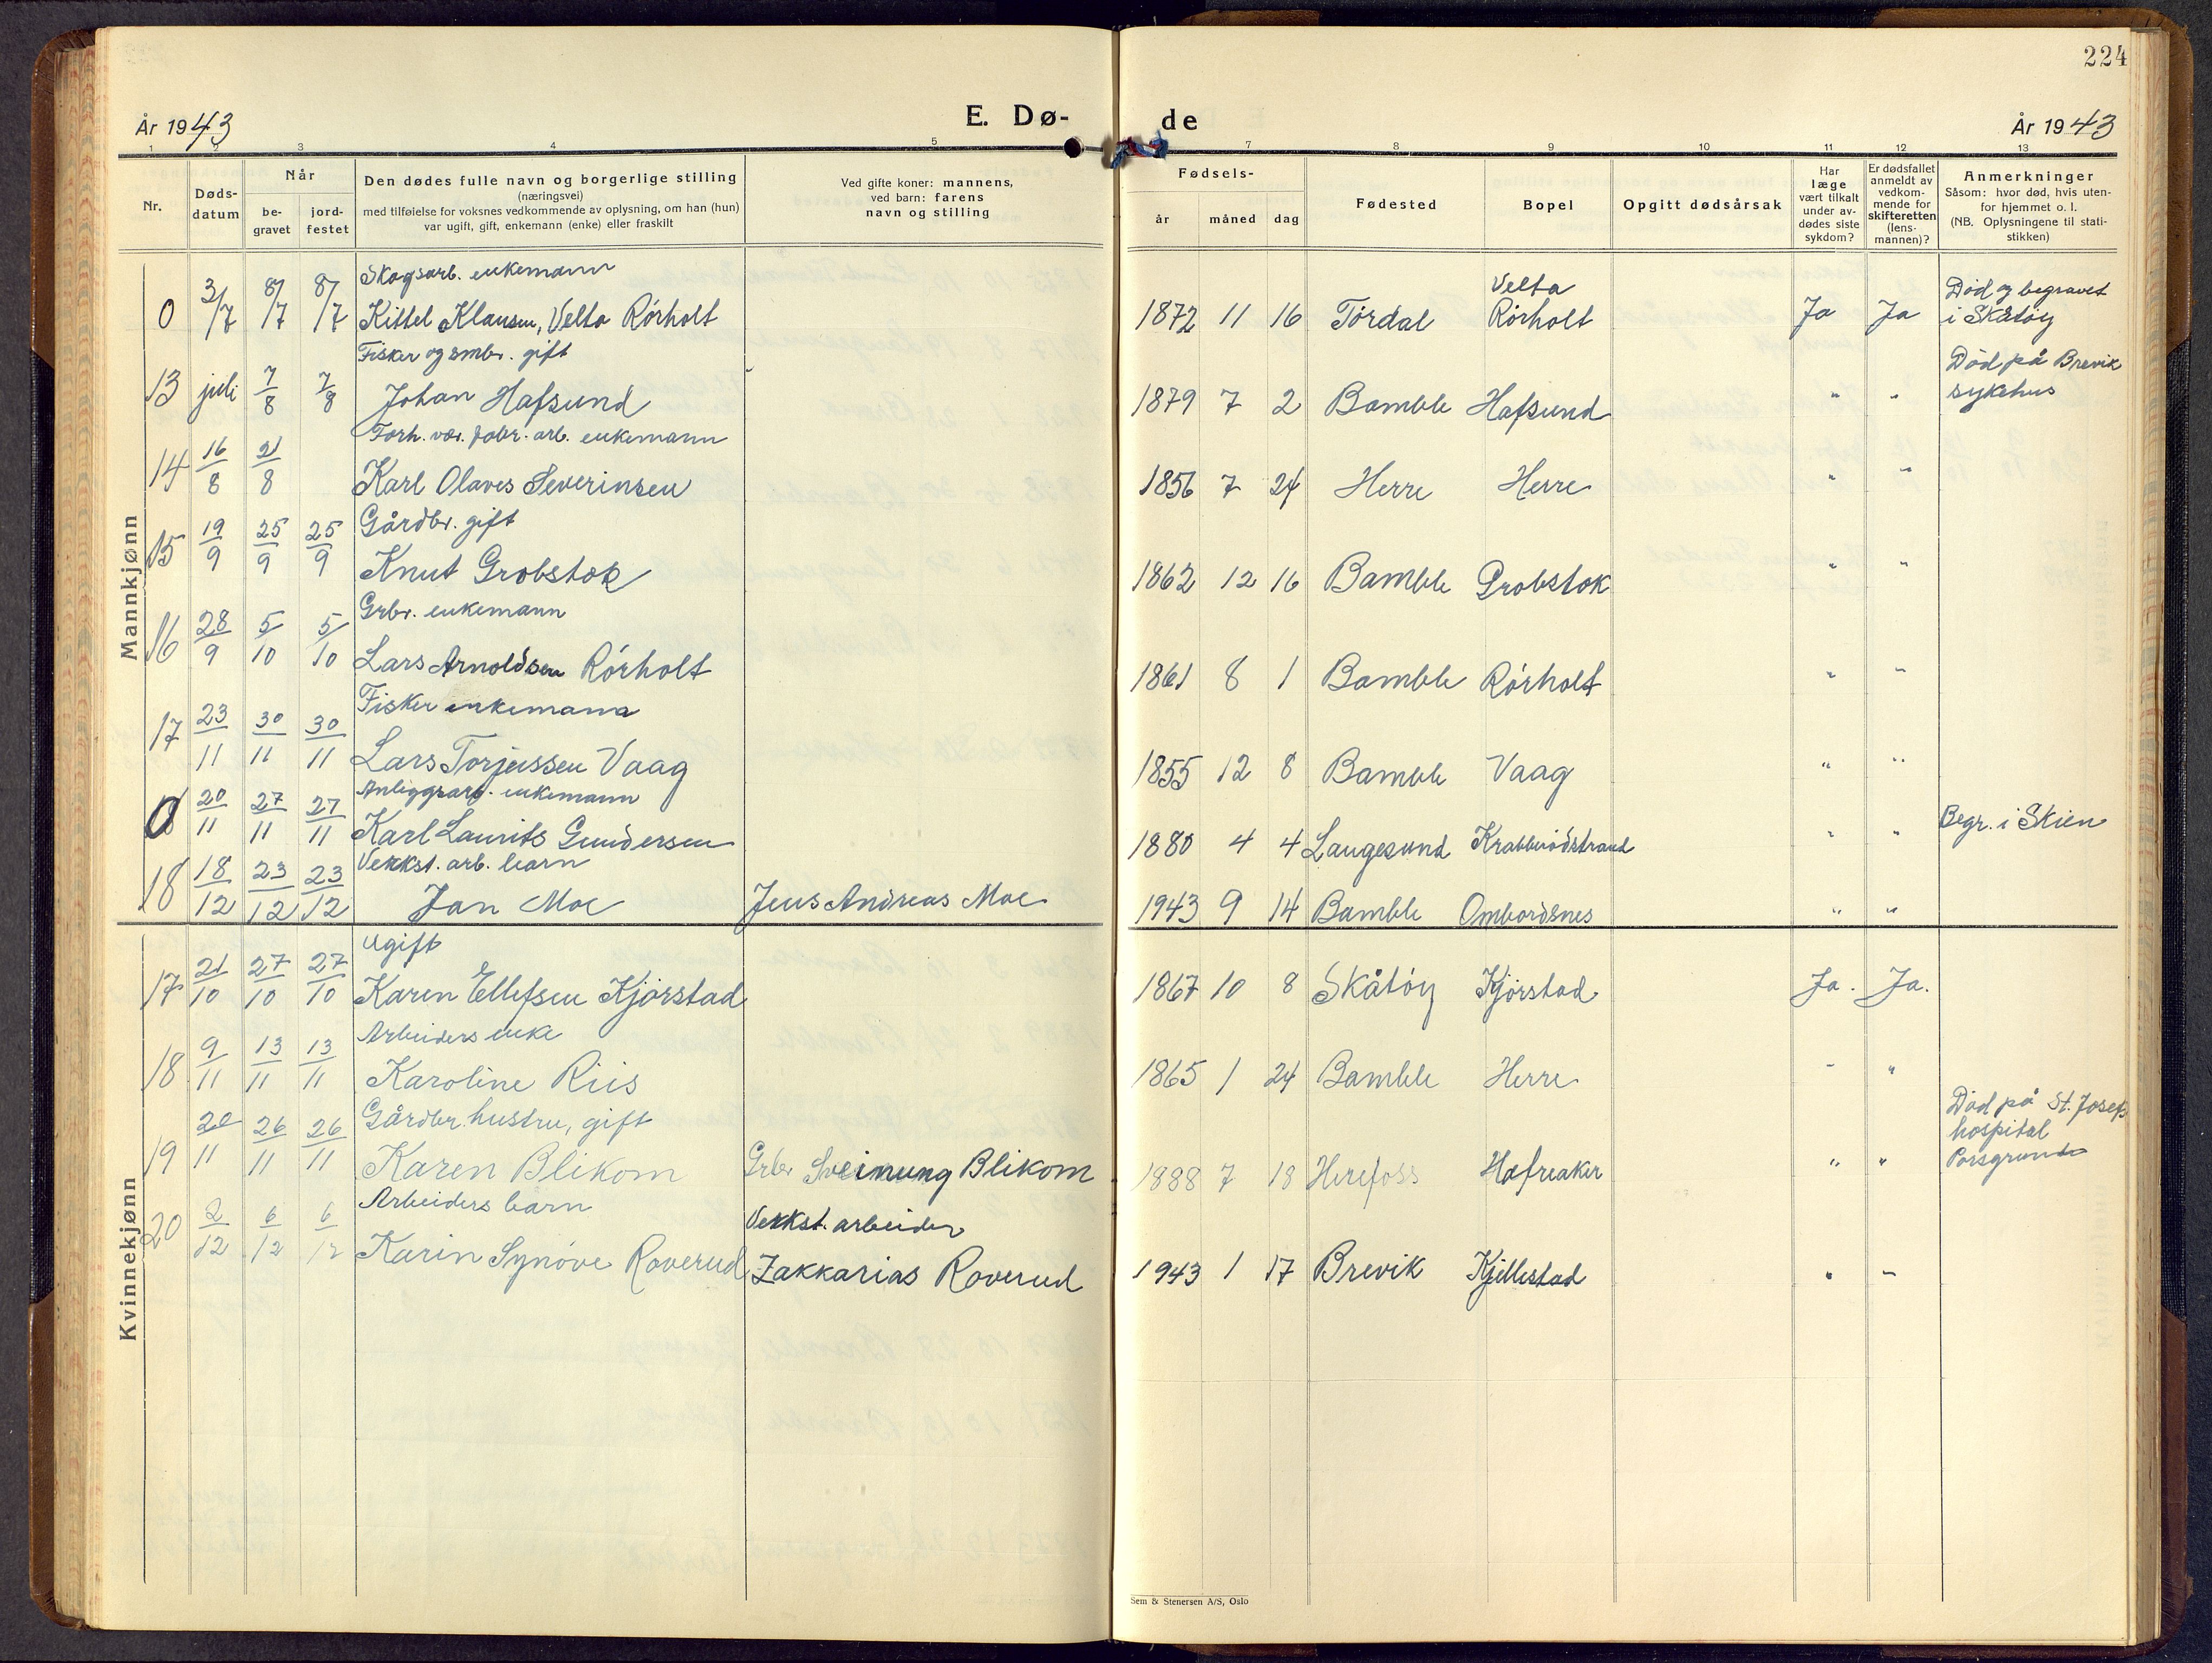 224
År 1943
E. Dø-
de
År 1943
1 2 3 4 5 7 8 9 10 11 12 13
Nr.
Døds-
datum
Når
be-
gravet
jord-
festet
Den dødes fulle navn og borgerlige stilling
(næringsvei)
med tilføielse for voksnes vedkommende av oplysning, om han (hun)
var ugift, gift, enkemann (enke) eller fraskilt
Ved gifte koner: mannens,
ved barn: farens
navn og stilling
Fødsels-
år måned dag
Fødested
Bopel
Opgitt dødsårsak
Har
læge
vært tilkalt
under av-
dødes siste
sykdom?
Er dødsfallet
anmeldt av
vedkom-
mende for
skifteretten
(lens-
mannen)?
Anmerkninger
Såsom: hvor død, hvis uten-
for hjemmet o. l.
(NB. Oplysningene til stati-
stikken)
Mannkjønn
Skogsarb. enkemann
0 3/7 8/7 8/7 Kittel Klausen, Velta Rörholt 1872 11 16 Tördal Velta Rörholt Ja Ja Död og begravet
i Skåtöy
Fisker og småbr. gift
13 juli 7/8 7/8 Johan Hafsund 1879 7 2 Bamble Hafsund " " Död på Brevik
sykehus
Forh. vær. fabr. arb. enkemann
14 16/8 21/8 Karl Olaves Severinsen 1856 7 24 Herre Herre " "
Gårdbr. gift
15 19/9 25/9 25/9 Knut Grobstok 1862 12 16 Bamble Grobstok " "
Grbr. enkemann
16 28/9 5/10 5/10 Lars Arnoldsen Rörholt 1861 8 1 Bamble Rörholt " "
Fisker enkemann
17 23/11 30/11 30/11 Lars Torjussen Vaag 1855 12 8 Bamble Vaag " "
Anleggsarb. enkemann
0 20/11 27/11 27/11 Karl Laurits Gundersen 1880 4 4 Langesund Krabberödstrand " " Begr. i Skien
Verkst. arb. barn
18 18/12 23/12 23/12 Jan Moe Jens Andreas Moe 1943 9 14 Bamble Ombordsnes " "
Kvinnekjønn
Ugift
17 21/10 27/10 27/10 Karen Ellefsen Kjörstad 1867 10 8 Skåtöy Kjörstad Ja. Ja.
Arbeiders enke
18 9/11 13/11 13/11 Karoline Riis 1865 1 24 Bamble Herre " "
Gårdbr. hustru, gift
19 20/11 26/11 26/11 Karen Blikom Grbr Sveinung Blikom 1888 7 18 Herefoss Hafreaker " " Död på St. Josefs
hospital
Porsgrunn
Arbeiders barn
Verkst. arbeider
20 2/12 6/12 6/12 Karin Synöve Roverud Zakkarias Roverud 1943 1 17 Brevik Kjellestad " "
Sem & Stenersen A/S, Oslo